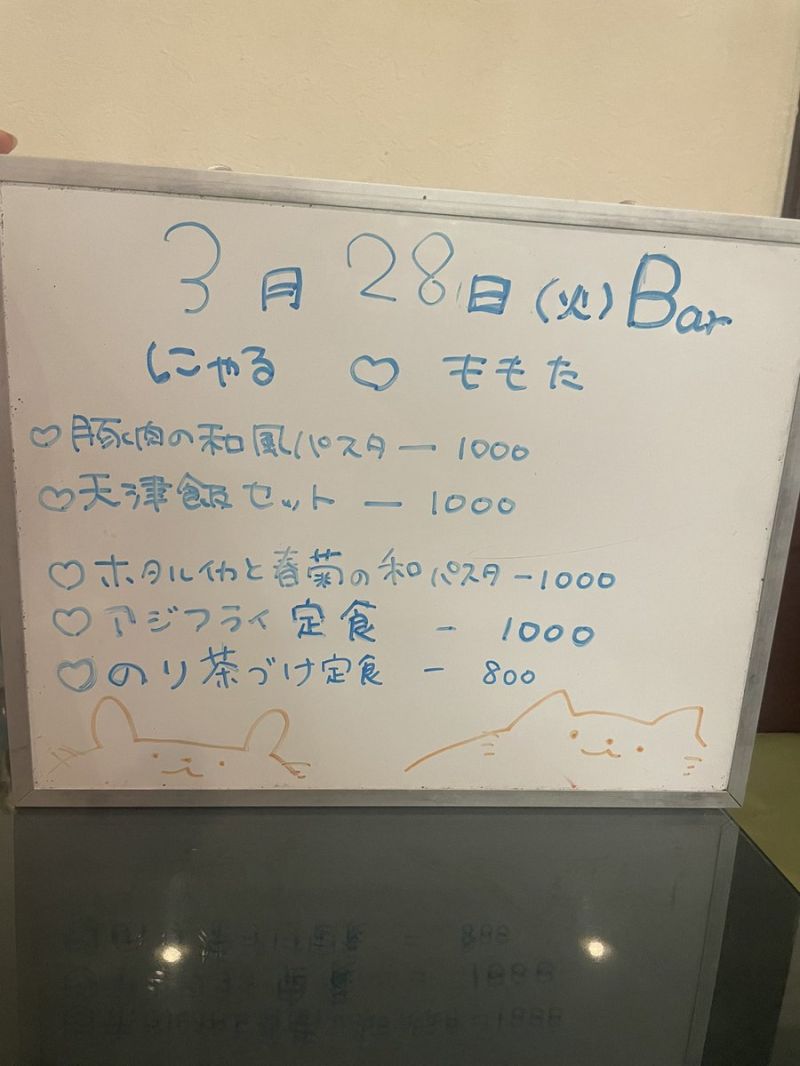 3月28日(火)Bar
にゃる ♡ ももた
♡豚肉の和風パスタ ー 1000
♡天津飯セット ー 1000
♡ホタルイカと春菊の和パスタ ー1000
♡アジフライ定食 - 1000
♡のり茶づけ定食 - 800